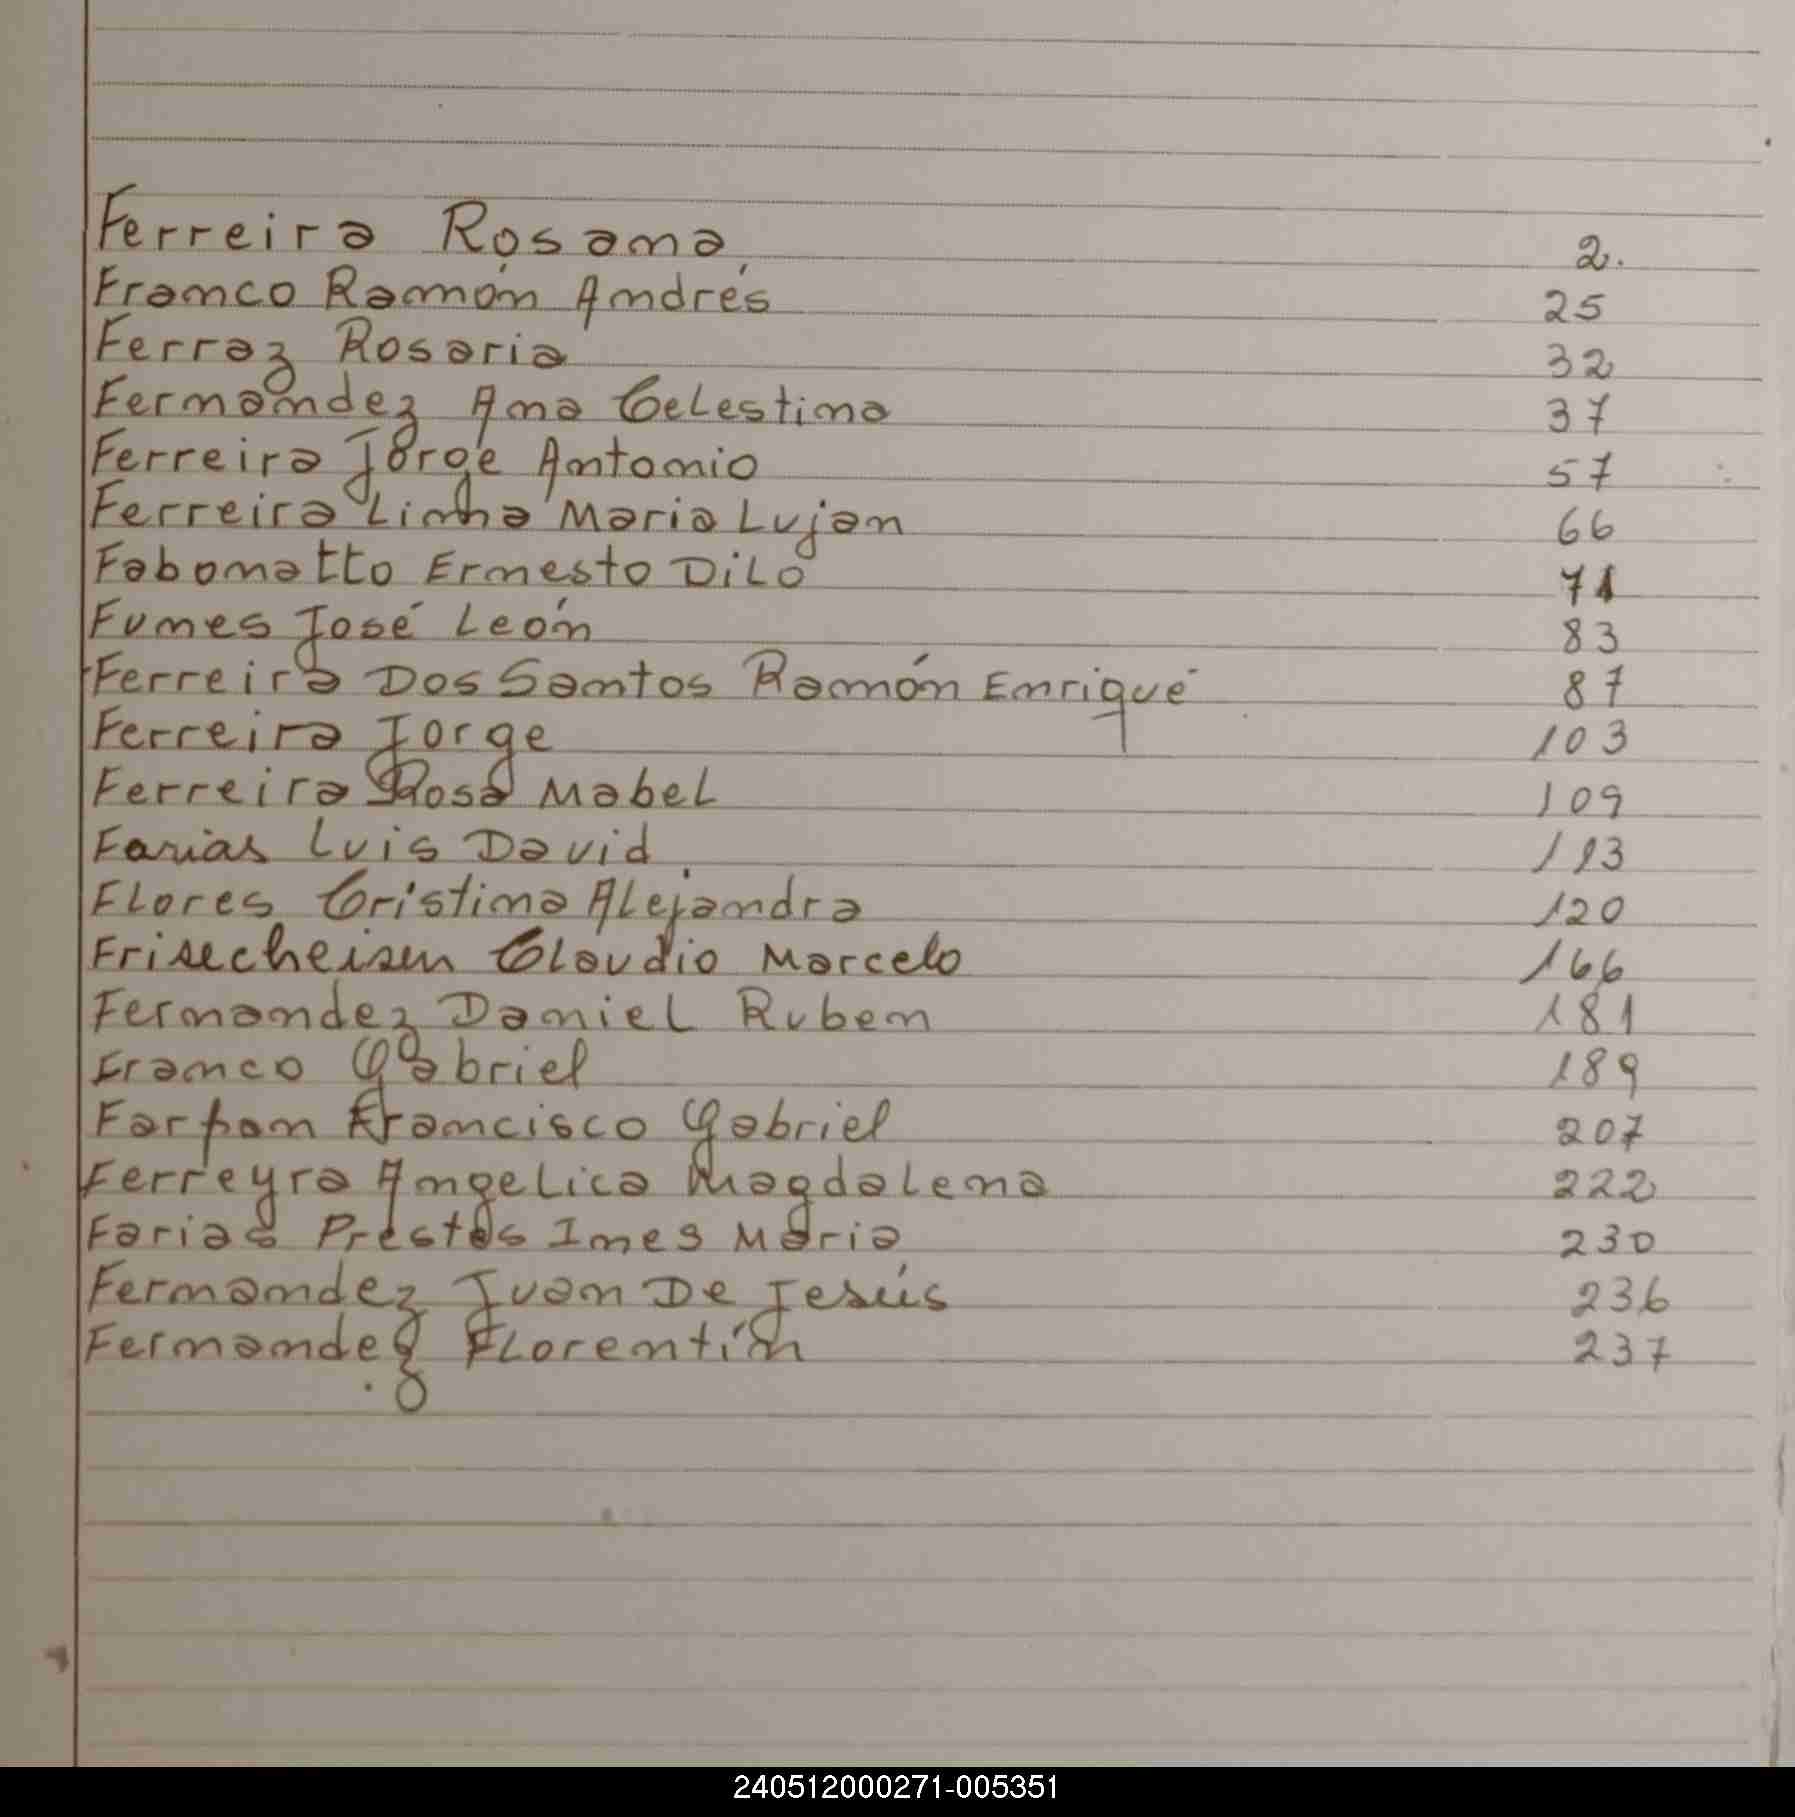 Ferreira Rosana 2.
Franco Ramón Andrés 25
Ferraz Rosaria 32
Fernandez Ana Celestina 37
Ferreira Jorge Antonio 57
Ferreira Linha Maria Lujan 66
Fabonatto Ernesto Dilo 71
Funes José León 83
Ferreira Dos Santos Ramón Enrique 87
Ferreira Jorge 103
Ferreira Rosa Mabel 109
Farias Luis David 113
Flores Cristina Alejandra 120
Frisecheisen Claudio Marcelo 166
Fernandez Daniel Ruben 181
Franco Gabriel 189
Farpan Francisco Gabriel 207
Ferreyra Angelica Magdalena 222
Farias Prestes Ines Maria 230
Fernandez Juan De Jesús 236
Fernandez Florentín 237
240512000271-005351